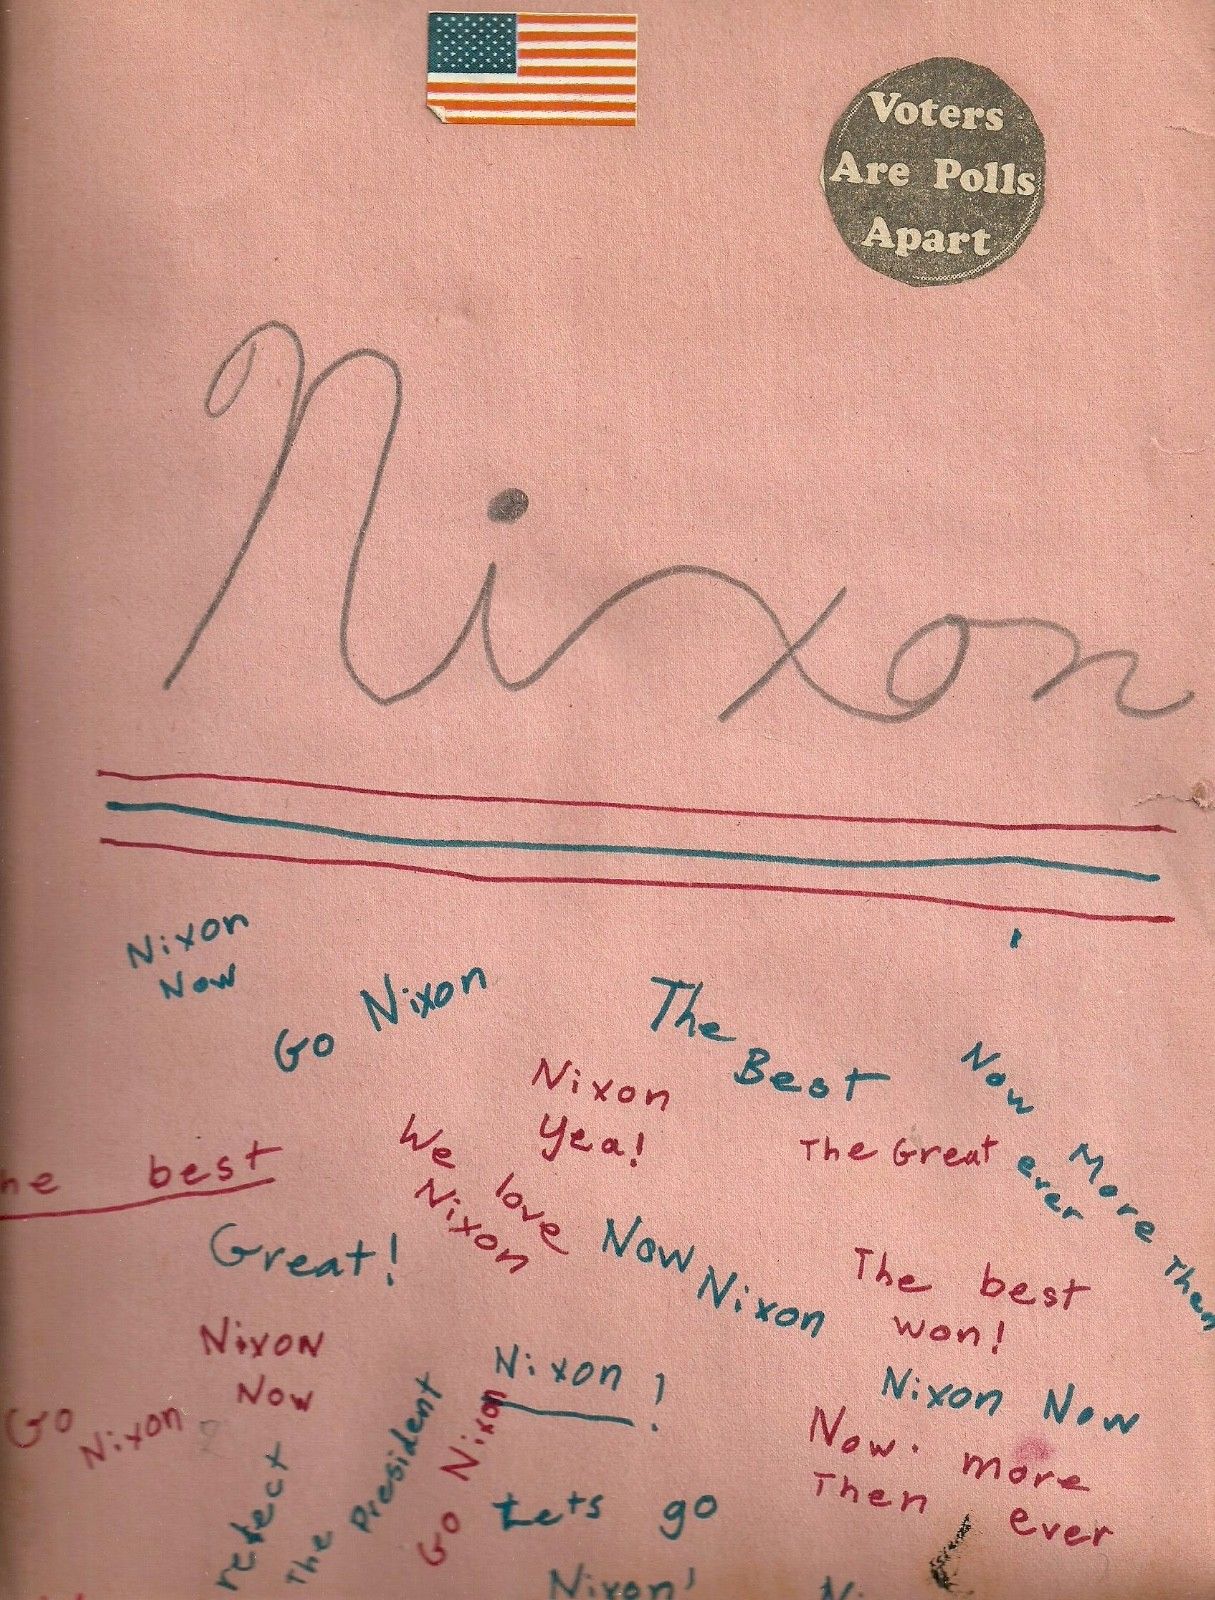 Voters
Are Polls
Apart
Nixon
Nixon
Now
Go Nixon
The
Best
Now More Then
ever
Nixon
Yea!
The Great
We love
Nixon
he best
Great!
Now Nixon
The best
won!
Nixon
Now
Nixon!
Nixon Now
Go Nixon
Now more
Then ever
The President
Go Nixon
Lets go
Nixon!
Ni